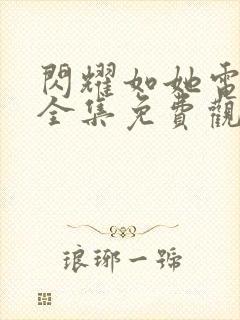 閃耀如她電
全集免費觀
琅琊一號